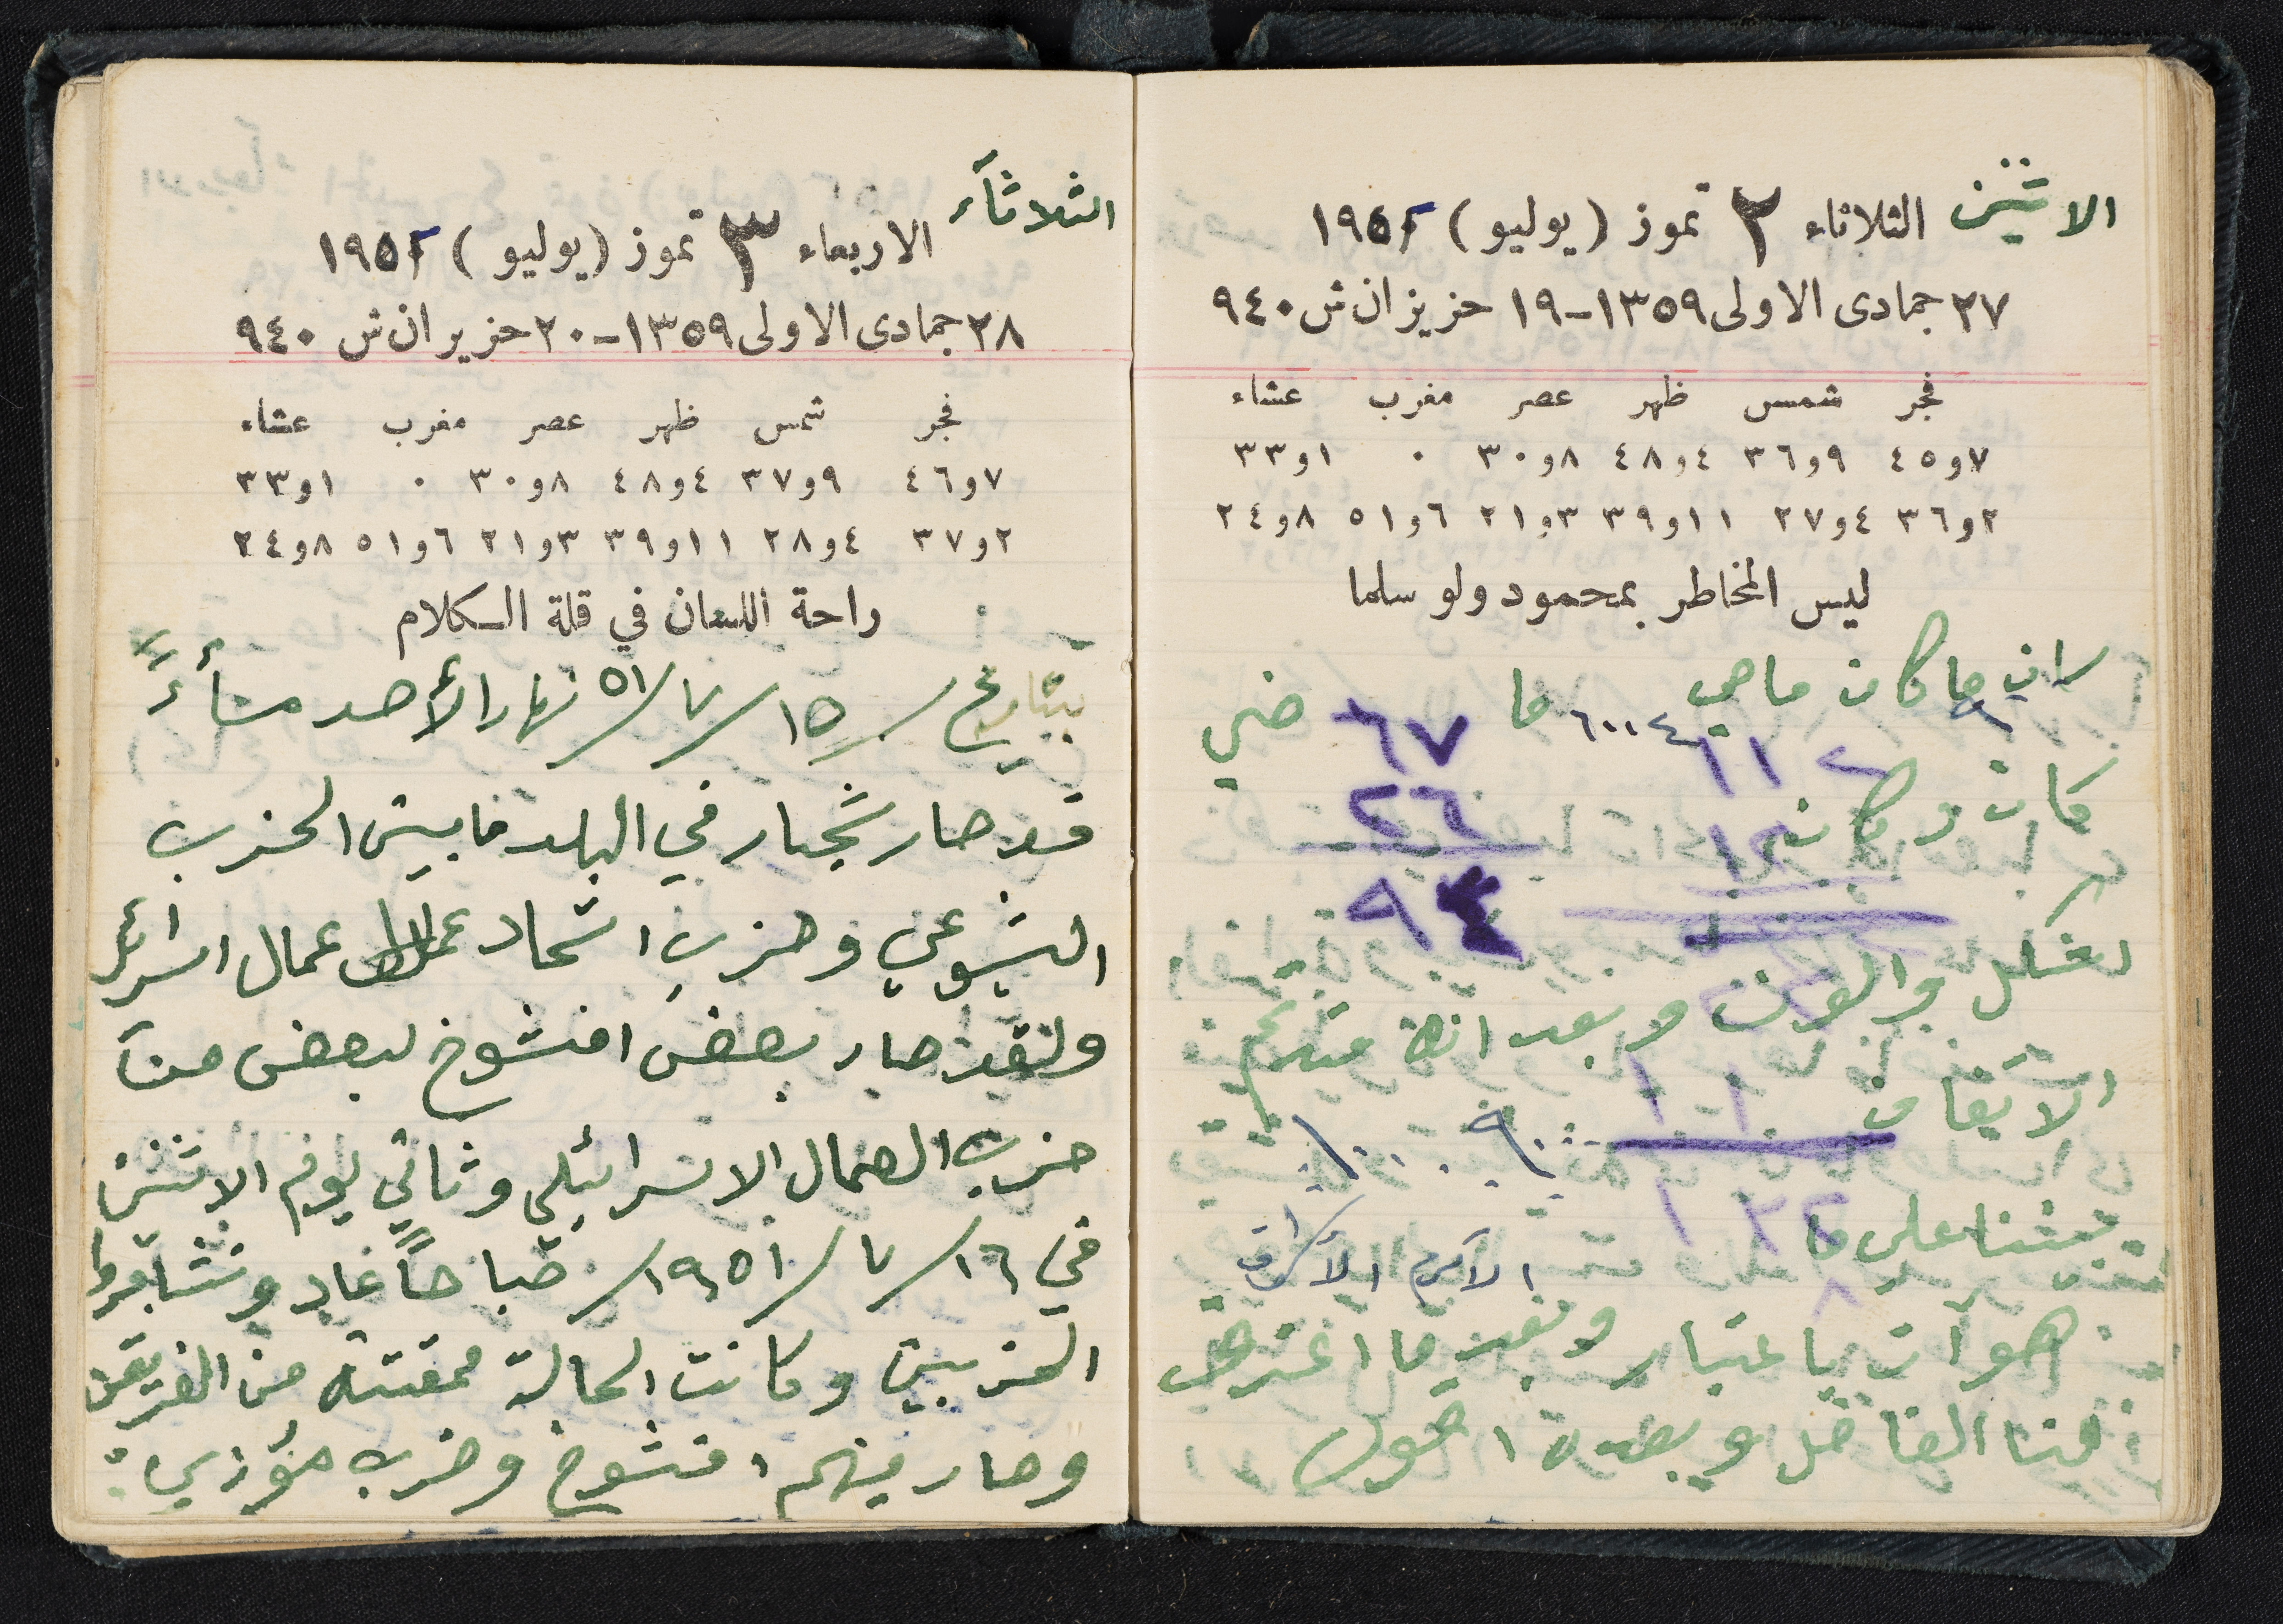 الاثنين الثلاثاء ٢ تموز (يوليو) ١٩٥١
٢٧ جمادى الاولى ١٣٥٩-١٩ حزيران ش ٩٤٠
فجر شمس ظهر عصر مغرب عشاء
٧و٤٥ ٩و٣٦ ٤و٤٨ ٨و٣٠ ٠ ١و٣٣
٢و٣٦ ٤و٢٧ ١١و٣٩ ٣و٢١ ٦و٥١ ٨و٢٤
ليس المخاطر بمحمود ولو سلما
ما كان ما ضي
٦٠٠٤
٦٧
٦١
كان وكان
٢٦
١٢
٩٣
وبعد
الاتفاق
١١
٩٠
بيننا على ما
هو آت باعتبار وبعد ما
منا الفاضل وبعده اقول
الثلاثآء الاربعاء ٣ تموز (يوليو) ١٩٥١
٢٨ جمادى الاولى ١٣٥٩-٢٠ حزيران ش ٩٤٠
فجر شمس ظهر عصر مغرب عشاء
٧و٤٦ ٩و٣٧ ٤و٤٨ ٨و٣٠ ٠ ١و٣٣
٢و٣٧ ٤و٢٨ ١١و٣٩ ٣و٢١ ٦و٥١ ٨و٢٤
راحة اللسان في قلة الكلام
بتاريخ ١٥/٧/٥١ نهار الأحد مسأءً
قد صار شجار في البلد ما بين الحزب
الشيوعي وحزب اتحاد عمال اسرائل
ولقد صار بعض افشوخ لبعض من
حزب العمال الاسرائيلي وثاني يوم الاثنين
في ١٦/٧/١٩٥١/ صباحاً عاد وتشاجرو
الحزبين وكانت الحالة ممقتته من الفريقين
وصار منهم افشوخ وضرب مؤزي